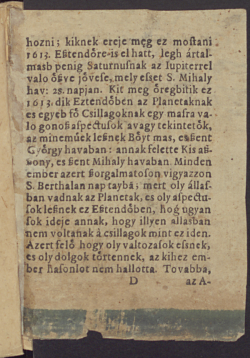 hozni; kiknek ereje meg ez mostani
1613. Eſztendőre-is el hatt, legh ártal-
masb penig Saturnusnak az Iupiterrel
valo öſzve jövese, mely eſset S. Mihaly
hav: 28. napjan. Kit meg öregbitik ez
1613. dik Eztendőben az Planetaknak
es egyeb fő Csillagoknak egy masra va-
lo gonoſz aſpectuſok avagy tekintetők,
az minemüek leſnek Böyt mas, es Szent
György havaban: annak felette Kis aſ-
ſzony, es ſzent Mihaly havaban. Minden
ember azert ſzorgalmatoson vigyazzon
S. Berthalan nap taybá; mert oly állaſ-
ban vadnak az Planetak, es oly aſpectu-
ſok leſznek ez Eſztendőben, hog ugyan
ſok ideje annak, hogy illyen állaſban
nem voltanak à csillagok mint ez iden.
Azert felő hogy oly valtozaſok eſnek,
es oly dolgok törtennek, az kihez em-
ber haſonlot nem hallotta. Továbba,
D az A-